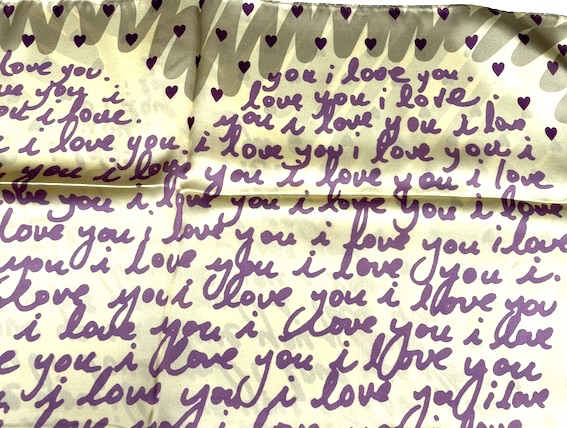 love you. you i love you.
ve you i love you i love.
ou i love. you i love you i lov
i love you i love you i love you i
you i love you i love you i love
love you i love you i love you i love
love you i love you i love you i love
you i love you i love you i.
love you i love you i love you
i love you i love you i love
e you i love you i love you
u i love you i love you i love